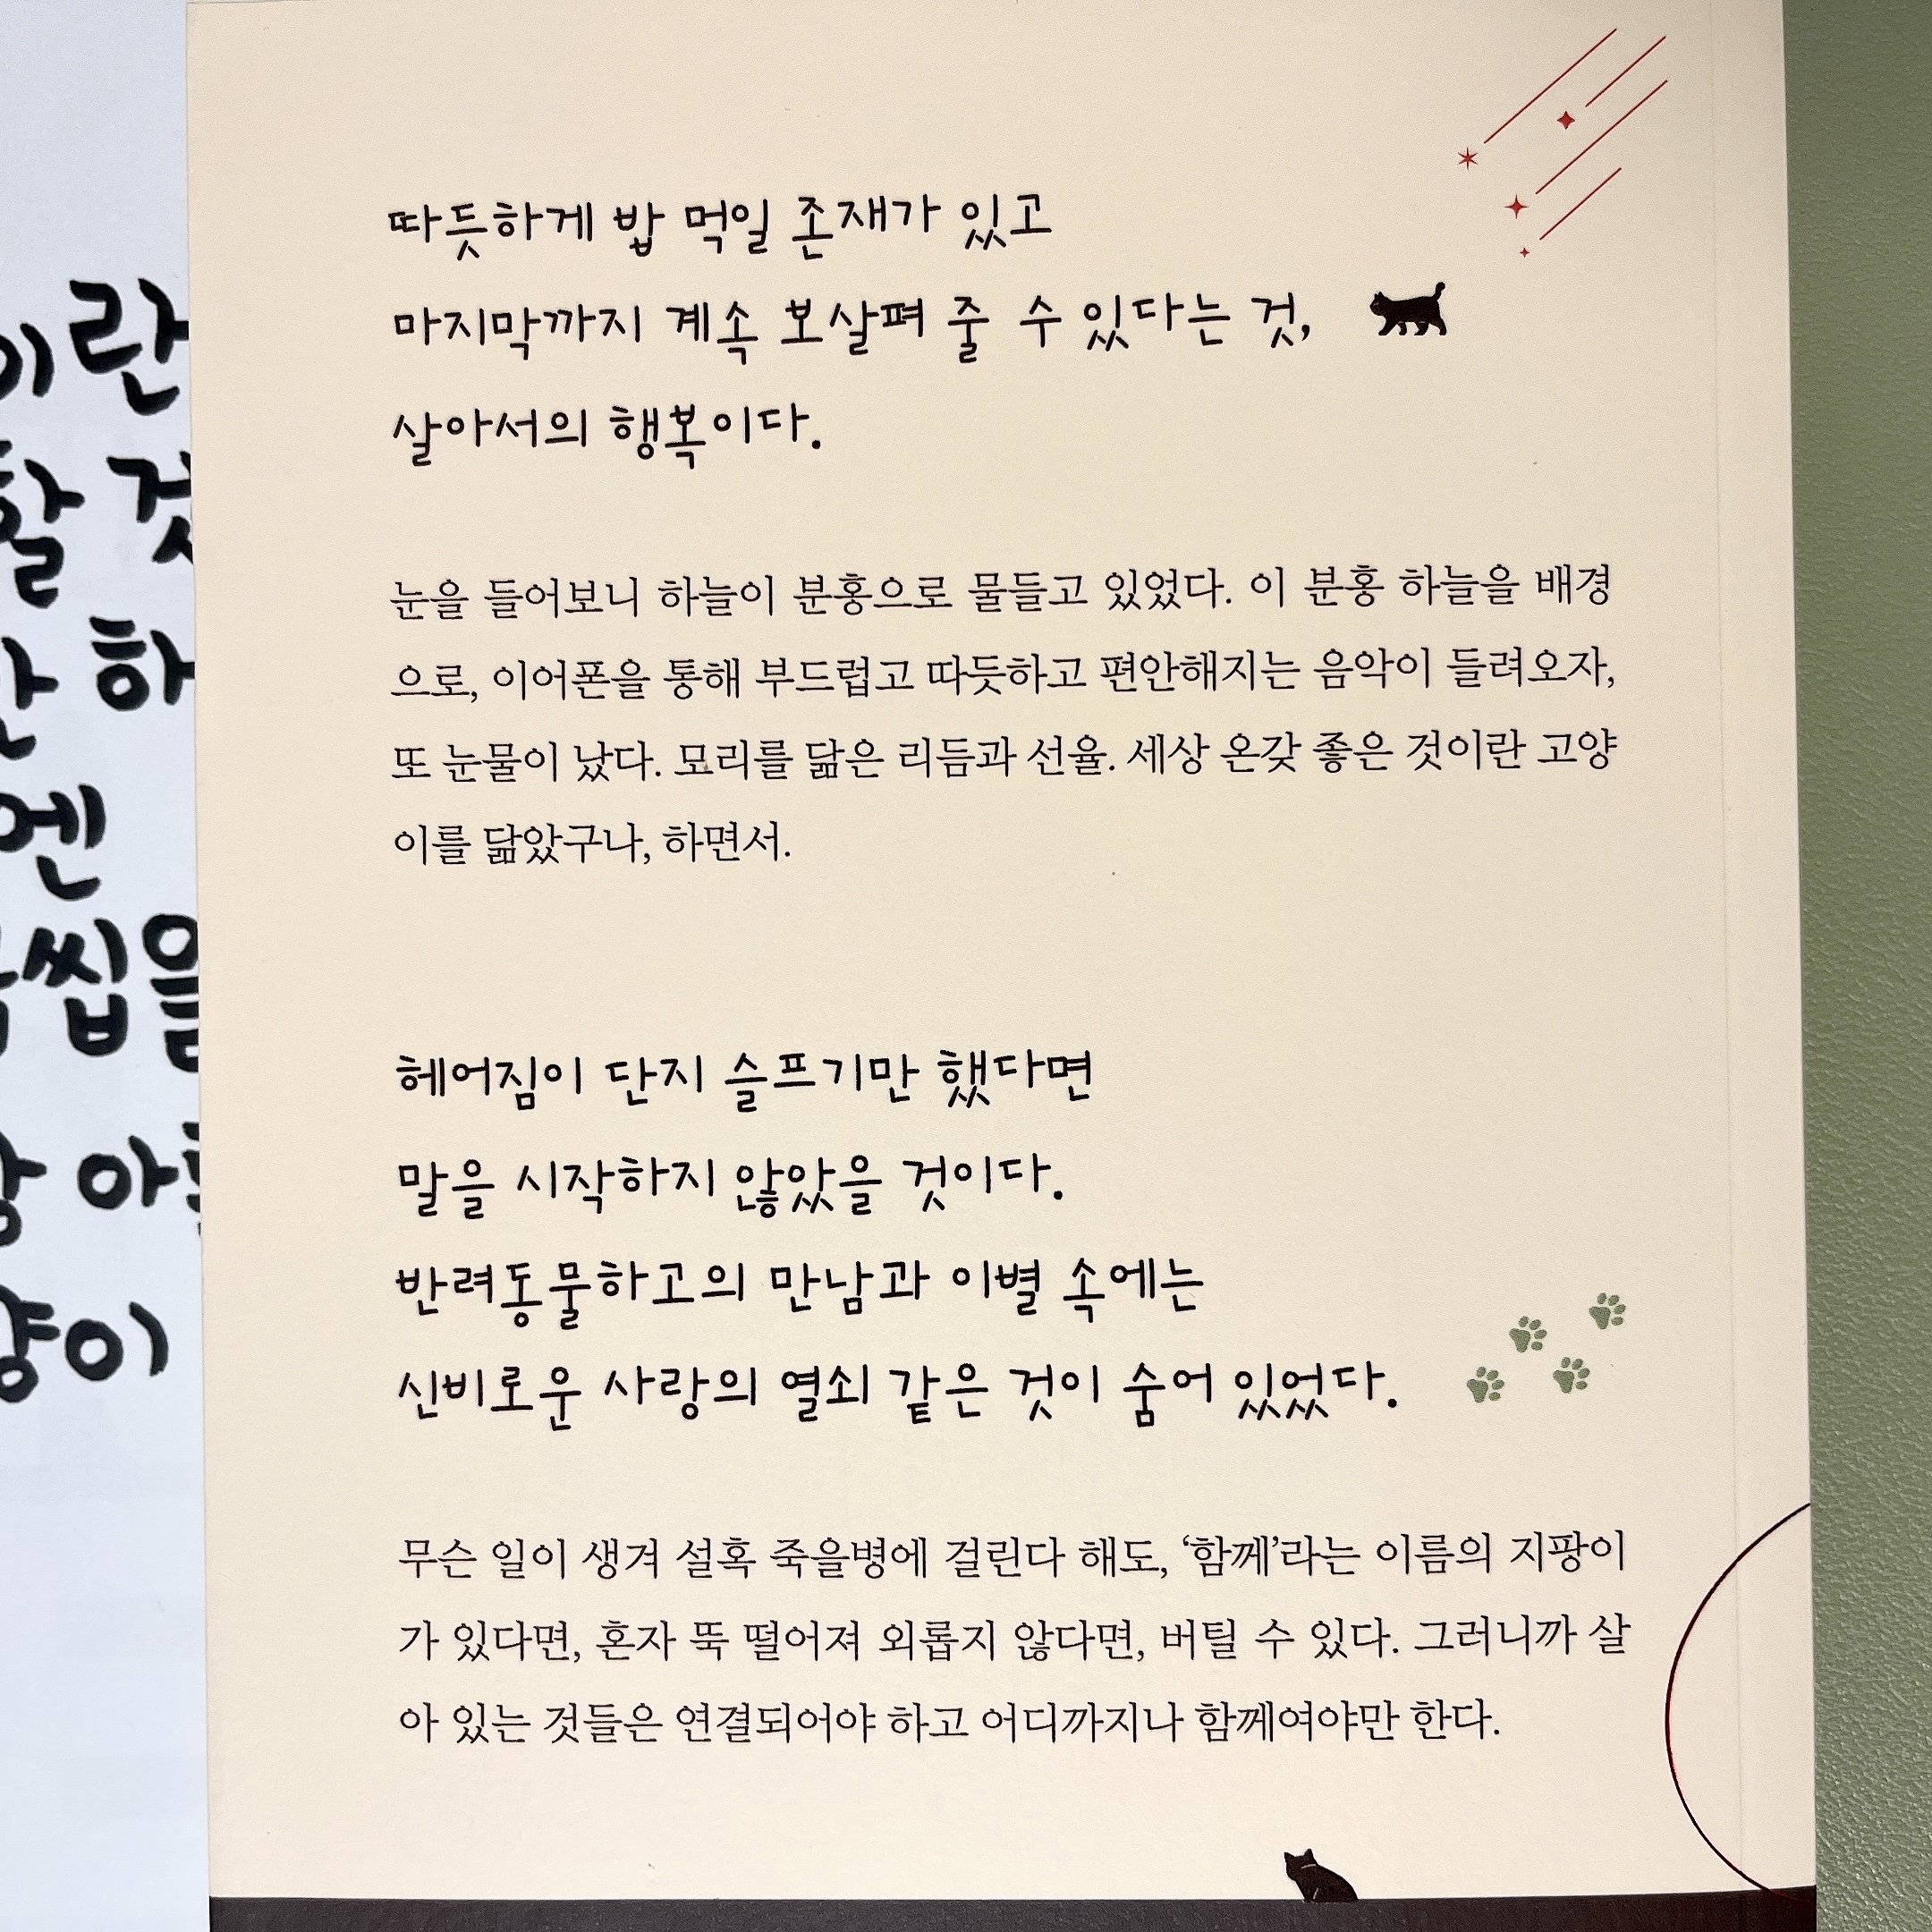 따듯하게 밥 먹일 존재가 있고
마지막까지 계속 보살펴 줄 수 있다는 것,
살아서의 행복이다.
눈을 들어보니 하늘이 분홍으로 물들고 있었다. 이 분홍 하늘을 배경
으로, 이어폰을 통해 부드럽고 따듯하고 편안해지는 음악이 들려오자,
또 눈물이 났다. 묘리를 닮은 리듬과 선율. 세상 온갖 좋은 것이란 고양
이를 닮았구나, 하면서.
헤어짐이 단지 슬프기만 했다면
말을 시작하지 않았을 것이다.
반려동물하고의 만남과 이별 속에는
신비로운 사랑의 열쇠 같은 것이 숨어 있었다.
무슨 일이 생겨 설혹 죽을병에 걸린다 해도, ‘함께’라는 이름의 지팡이
가 있다면, 혼자 뚝 떨어져 외롭지 않다면, 버틸 수 있다. 그러니까 살
아 있는 것들은 연결되어야 하고 어디까지나 함께여야만 한다.
이란
할 것
하
엔
씹을
아
양이